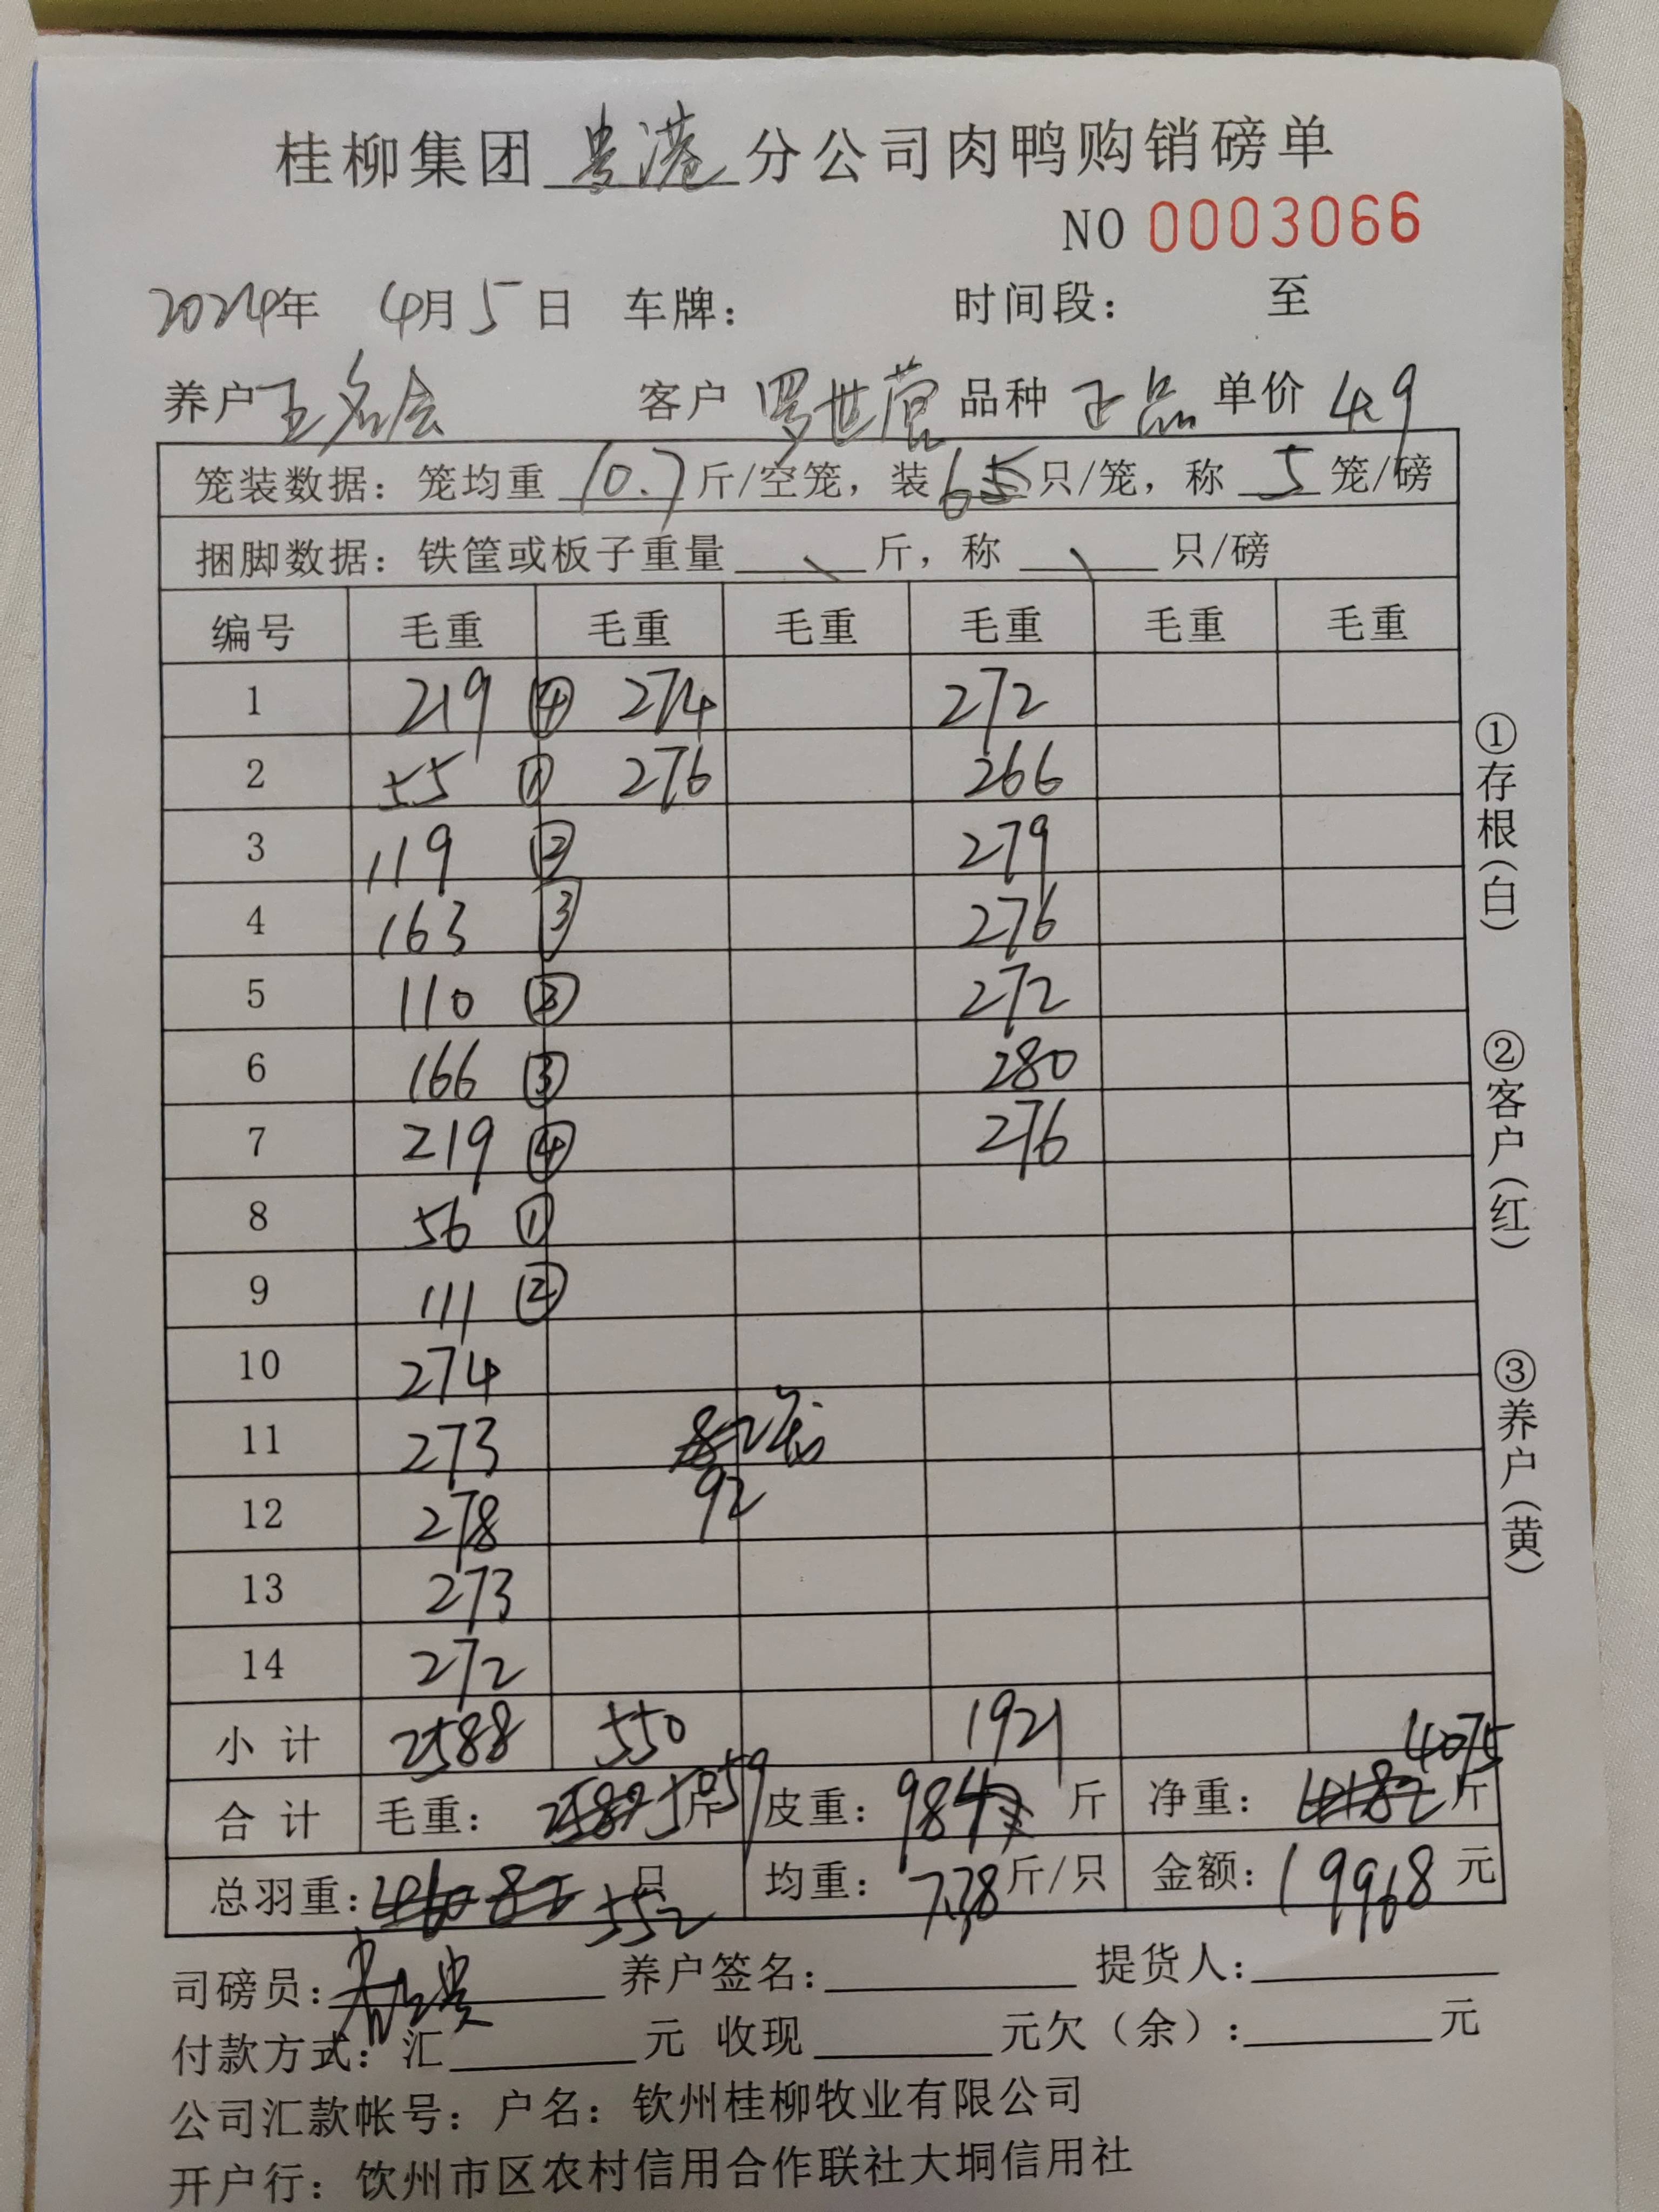 桂柳集团 贵港 分公司肉鸭购销磅单
NO 0003066
2024年 4月5日 车牌： 时间段： 至
养户 王名会 客户 罗世营 品种 正品 单价 4.9
笼装数据：笼均重 10.7 斤/空笼，装 6 只/笼，称 5 笼/磅
捆脚数据：铁筐或板子重量 \ 斤，称 \ 只/磅
编号 毛重 毛重 毛重 毛重 毛重 毛重
1 219 ④ 274 272
2 55 ① 276 266
3 119 ② 279
4 163 ③ 276
5 110 ② 272
6 166 ③ 280
7 219 ④ 276
8 56 ①
9 111 ②
10 274
11 273
12 278 92
13 273
14 272
小计 2588 550 1921
合计 毛重： 5059 斤 皮重： 984 斤 净重： 4075 斤
总羽重： 552 只 均重： 7.38 斤/只 金额： 19968 元
司磅员： 养户签名： 提货人：
付款方式：汇 元 收现 元欠（余）： 元
公司汇款帐号：户名：钦州桂柳牧业有限公司
开户行：钦州市区农村信用合作联社大垌信用社
①存根（白）
②客户（红）
③养户（黄）